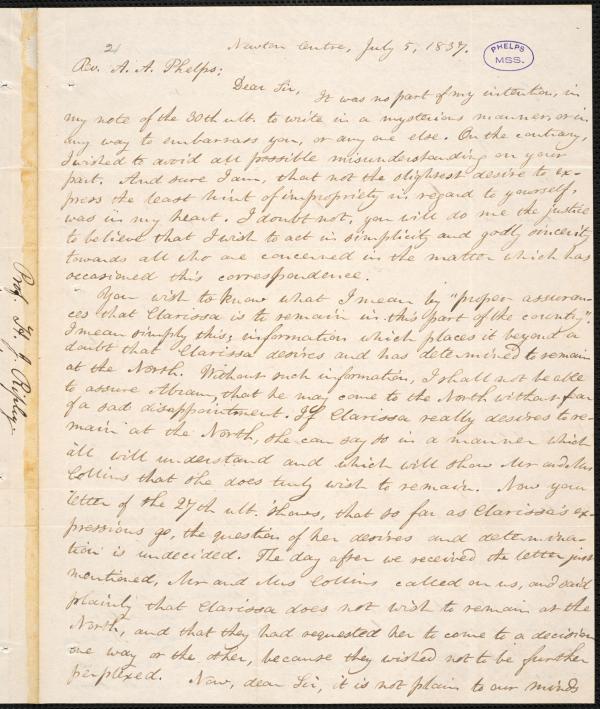 2
Newton Centre, July 5, 1837.
PHELPS
MSS.
Rev. A. A. Phelps;
Dear Sir,
It was no part of my intention, in
my note of the 30th ult. to write in a mysterious manner, or in
any way to embarrass you, or any one else. On the contrary,
I wished to avoid all possible misunderstanding on your
part. And sure I am, that not the slightest desire to ex-
press the least hint of impropriety in regard to yourself,
was in my heart. I doubt not, you will do me the justice
to believe that I wish to act in simplicity and godly sincerity
towards all who are concerned in the matter which has
occasioned this correspondence.
You wish to know what I mean by "proper assuran-
ces that Clarissa is to remain in this part of the country".
I mean simply this; information which places it beyond a
doubt that Clarissa desires and has determined to remain
at the North. Without such information, I shall not be able
to assure Abram, that he may come to the North without fear
of a sad disappointment. If Clarissa really desires to re-
main at the North, she can say so in a manner which
all will understand and which will show Mr and Mrs
Collins that she does truly wish to remain. Now your
letter of the 27th ult. shows, that so far as Clarissa's ex-
pressions go, the question of her desires and determina-
tion is undecided. The day after we received the letter just
mentioned, Mr and Mrs Collins called on us, and said
plainly that Clarissa does not wish to remain at the
North, and that they had requested her to come to a decision
one way or the other, because they wished not to be further
perplexed. Now, dear Sir, it is not plain to our minds
Prof. H. J. Ripley